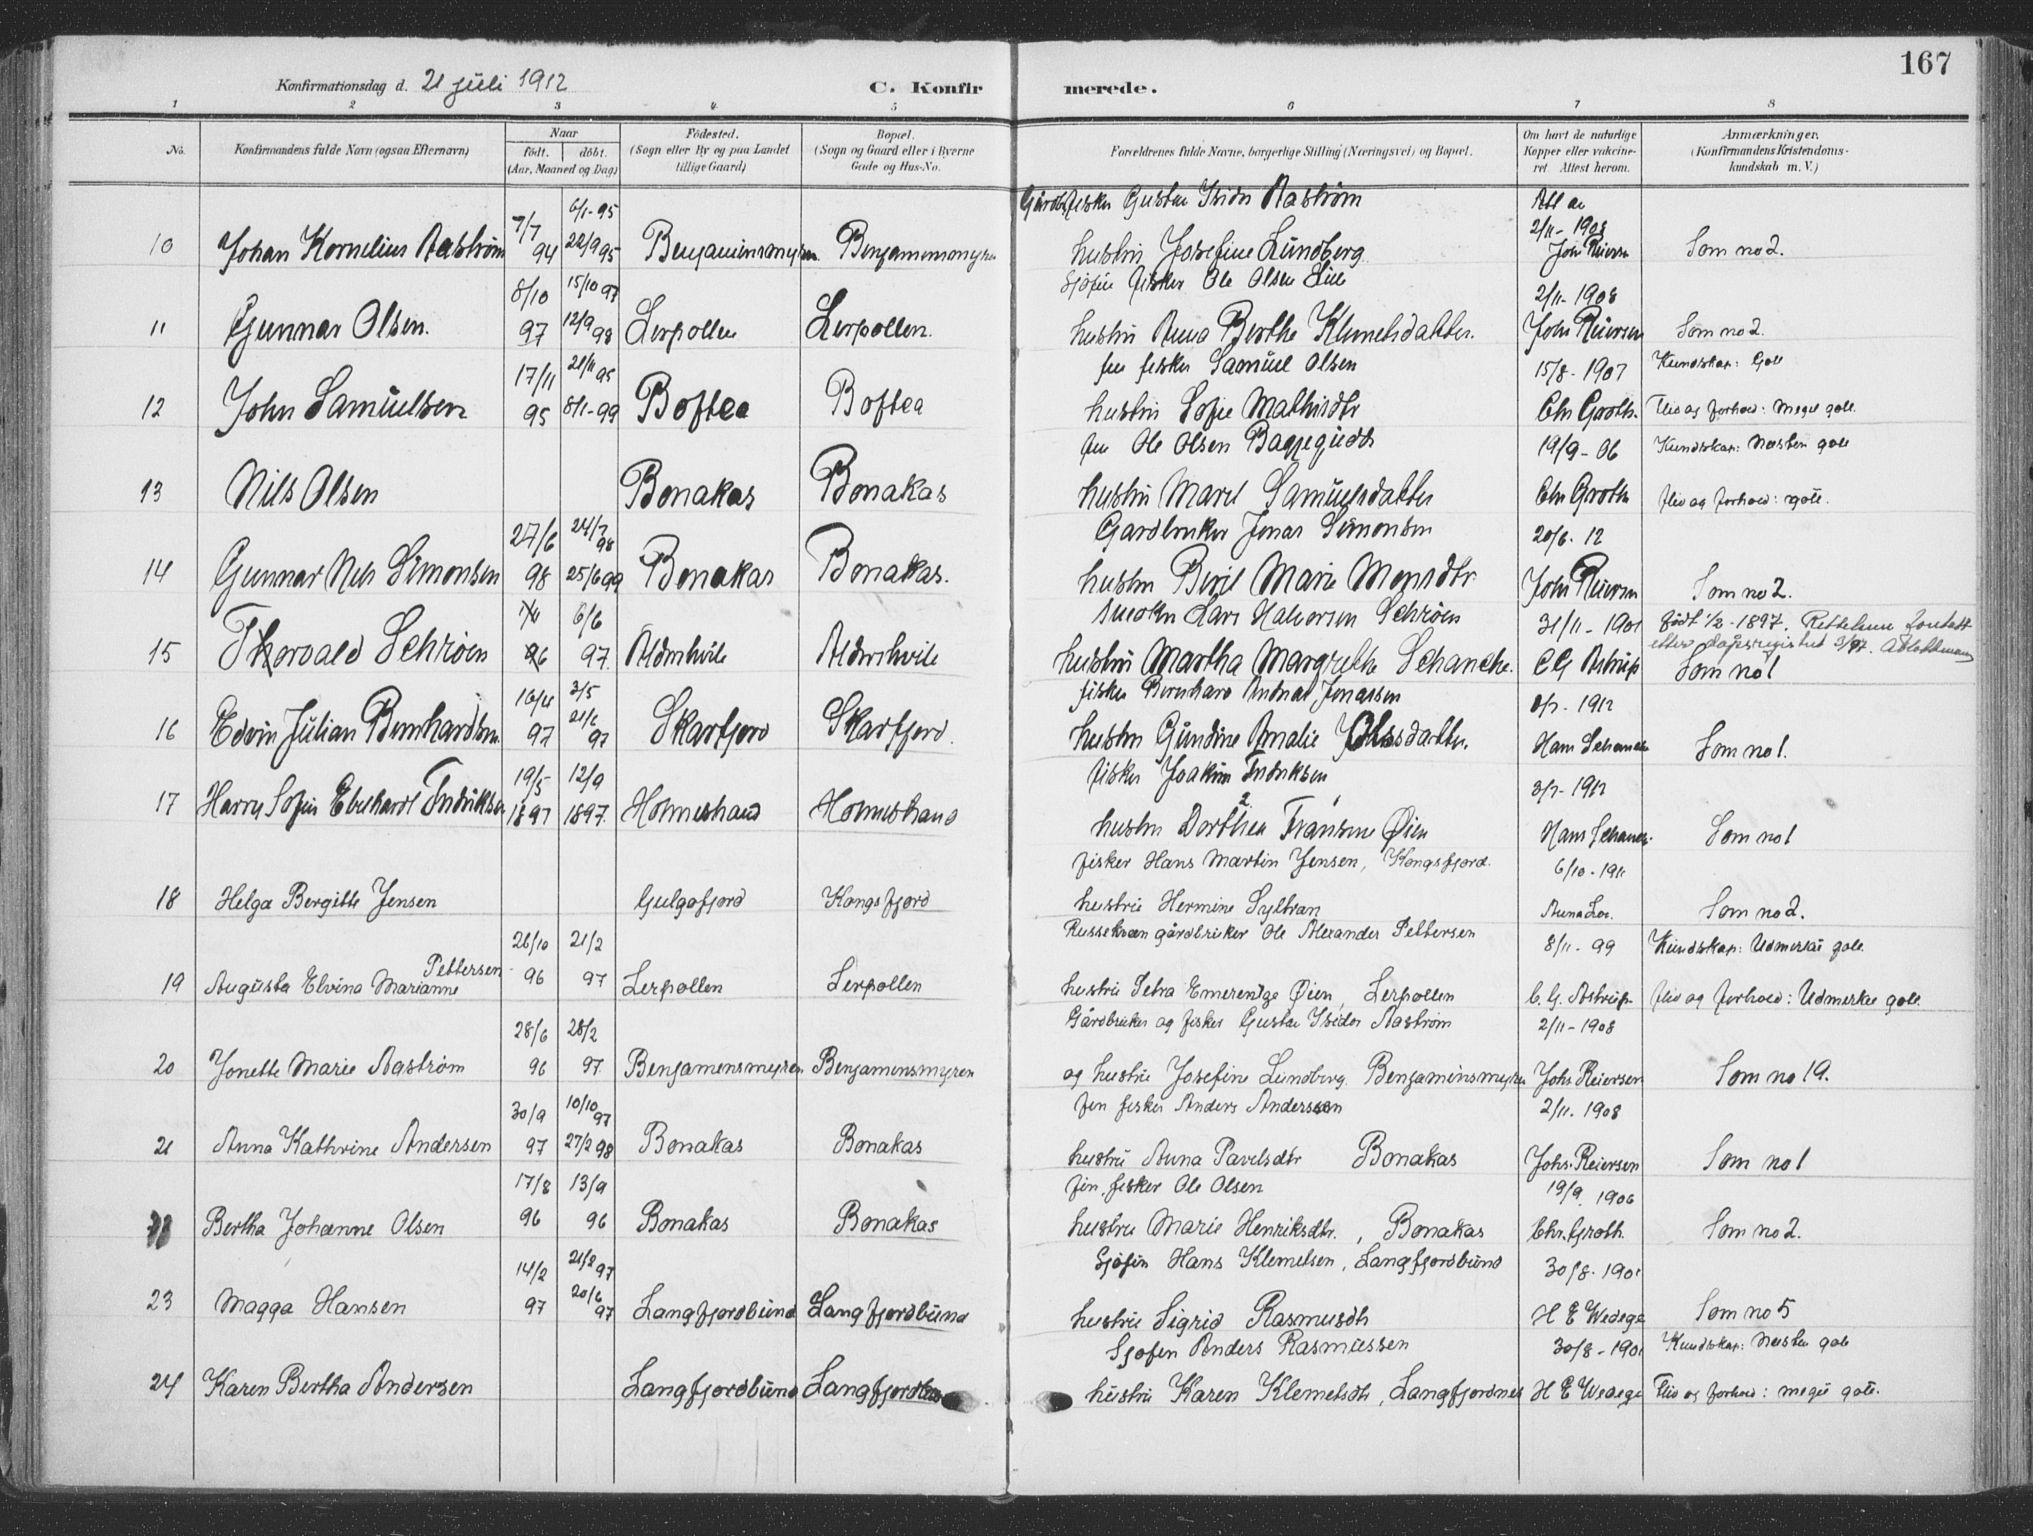 167
Konfirmationsdag d. 21 juli 1912 C. Konfir merede.
1 2 3 4 5 6 7 8
No. Konfirmandens fulde Navn (ogsaa Efternavn) Naar født. døbt. (Aar, Maaned og Dag) Fødested. (Sogn eller By og paa Landet tillige Gaard) Bopæl. (Sogn og Gaard eller i Byerne Gade og Hus-No. Forældrenes fulde Navne, borgerlige Stilling (Næringsvei) og Bopæl. Om havt de naturlige Kopper eller vakcineret Attest herom. Anmærkninger. (Konfirmandens Kristendomskundskab m. V.)
7/7 6/1-95 fisker Gustav Isidor Aastrøm 2/11-1908
10 Johan Kornelius Aastrøm 94 22/9 95 Benjaminsmyren Benjaminsmyren hustru Josefine Lundberg Joh Reiersen Som no 2.
8/10 15/10 97 Sjøfin fisker Ole Olsen Lille 2/11-1908
11 Gunnar Olsen. 97 12/9 98 Lerpollen Lerpollen. hustru Anna Berthe Klemetsdatter. Johs Reiersen Som no 2.
17/11 21/11 95 fin fisker Samuel Olsen 15/8-1907 Kundskap: God
12 John Samuelsen 95 8/1-99 Boftea Boftea hustru Sofie Mathisdtr Chr Groth. Flid og forhold: Meget godt.
fin Ole Olsen 19/9-06 Kundskap: Næsten godt
13 Nils Olsen Bonakas Bonakas hustru Maret Samuelsdatter Chr Groth flid og forhold: godt.
27/6 24/7 98 Gardbruker Jonas Simonsen 20/6-12
14 Gunnar Nils Simonsen 98 25/6 99 Bonakas Bonakas. hustru Berit Marie Monsdtr Johs Reiersen Som no 2.
6/6 Lars Halvorsen Schrøen 31/11-1901 Født 1/2-1897. Rettelsen foretatt
15 Thorvald Schrøen 96 97. Aldershvile Aldershvile hustru Martha Margrethe Schanche. C G Astrup efter dåpsregistret Som no 1
16/4 3/5 fisker Bernhard Andreas Jonassen 3/7-1912
16 Edvin Julian Bernhardsen. 97 21/6 97 Skarfjord Skarfjord. hustru Gundine Amalie Olsdatter. Hans Schanche Som no 1.
19/5 12/9 fisker Joakim Fredriksen 3/7-1912
17 Harry Sofus Eberhardt Fredriksen 1897 1897. Holmeshaud Holmeshaud hustru Dorthea Fransine Øien Hans Schanche. Som no 1
fisker Hans Martin Jensen, Kongsfjord. 6/10-1911
18 Helga Bergitte Jensen Gulgofjord Kongsfjord hustru Hermine Syltran Anna Lor. Som no 2.
26/10 21/2 Russekvæn gårdbruker Ole Alexander Pettersen 8/11-99 Kundskap: Udmerket godt
Pettersen
19 Augusta Elvina Marianne 96 97 Lerpollen Lerpollen hustru Petra Emerentze Øien, Lerpollen C. G. Astrup flid og forhold: Udmerket godt.
28/6 28/2 Gårdbruker og fisker Gustav Isidor Aastrøm 2/11-1908
20 Jonette Marie Aastrøm 96 97. Benjamensmyren Benjamensmyren og hustru Josefine Lundberg. Benjaminsmyren Johs Reiersen Som no 19.
30/9 10/10 97 fin fisker Anders Anderssen 2/11.1908
21 Anna Kathrine Andersen 97 27/2 98 Bonakas Bonakas hustru Anna Pavelsdtr Bonakas Johs. Reiersen Som no 1
17/8 13/9 fin. fisker Ole Olsen 19/9 1906
Bertha Johanne Olsen 96 96 Bonakas Bonakas hustru Marie Henriksdtr., Bonakas Chr. Groth. Som no 2.
14/2 21/2 97 Sjøfin Hans Klemetsen, Langfjordbund 30/8-1901
23 Magga Hansen 97 20/6 97 Langfjordbund Langfjordbund hustru Sigrid Rasmusdtr H E Wedege Som no 5
Sjøfin Anders Rasmussen 30/8-1901 Kundskap: Næsten godt
24 Karen Bertha Andersen Langfjordbund Langfjordbund hustru Karen Klemetsdtr, Langfjordnes H E Wedege Flid og forhold: meget godt.